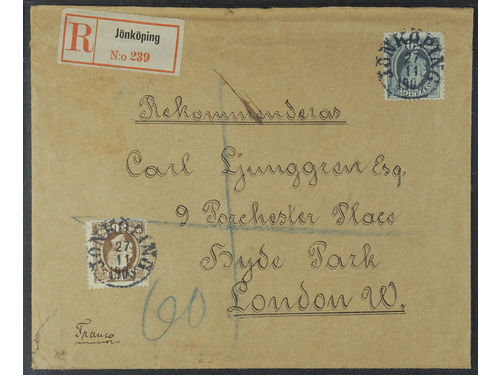 R
Jönköping
N:o 239
JÖNKÖPING
27
11
Rekommenderas
Carl Ljunggren Esq.
9 Porchester Place
Hyde Park
London W.
JÖNKÖPING
27
11
60
Franco